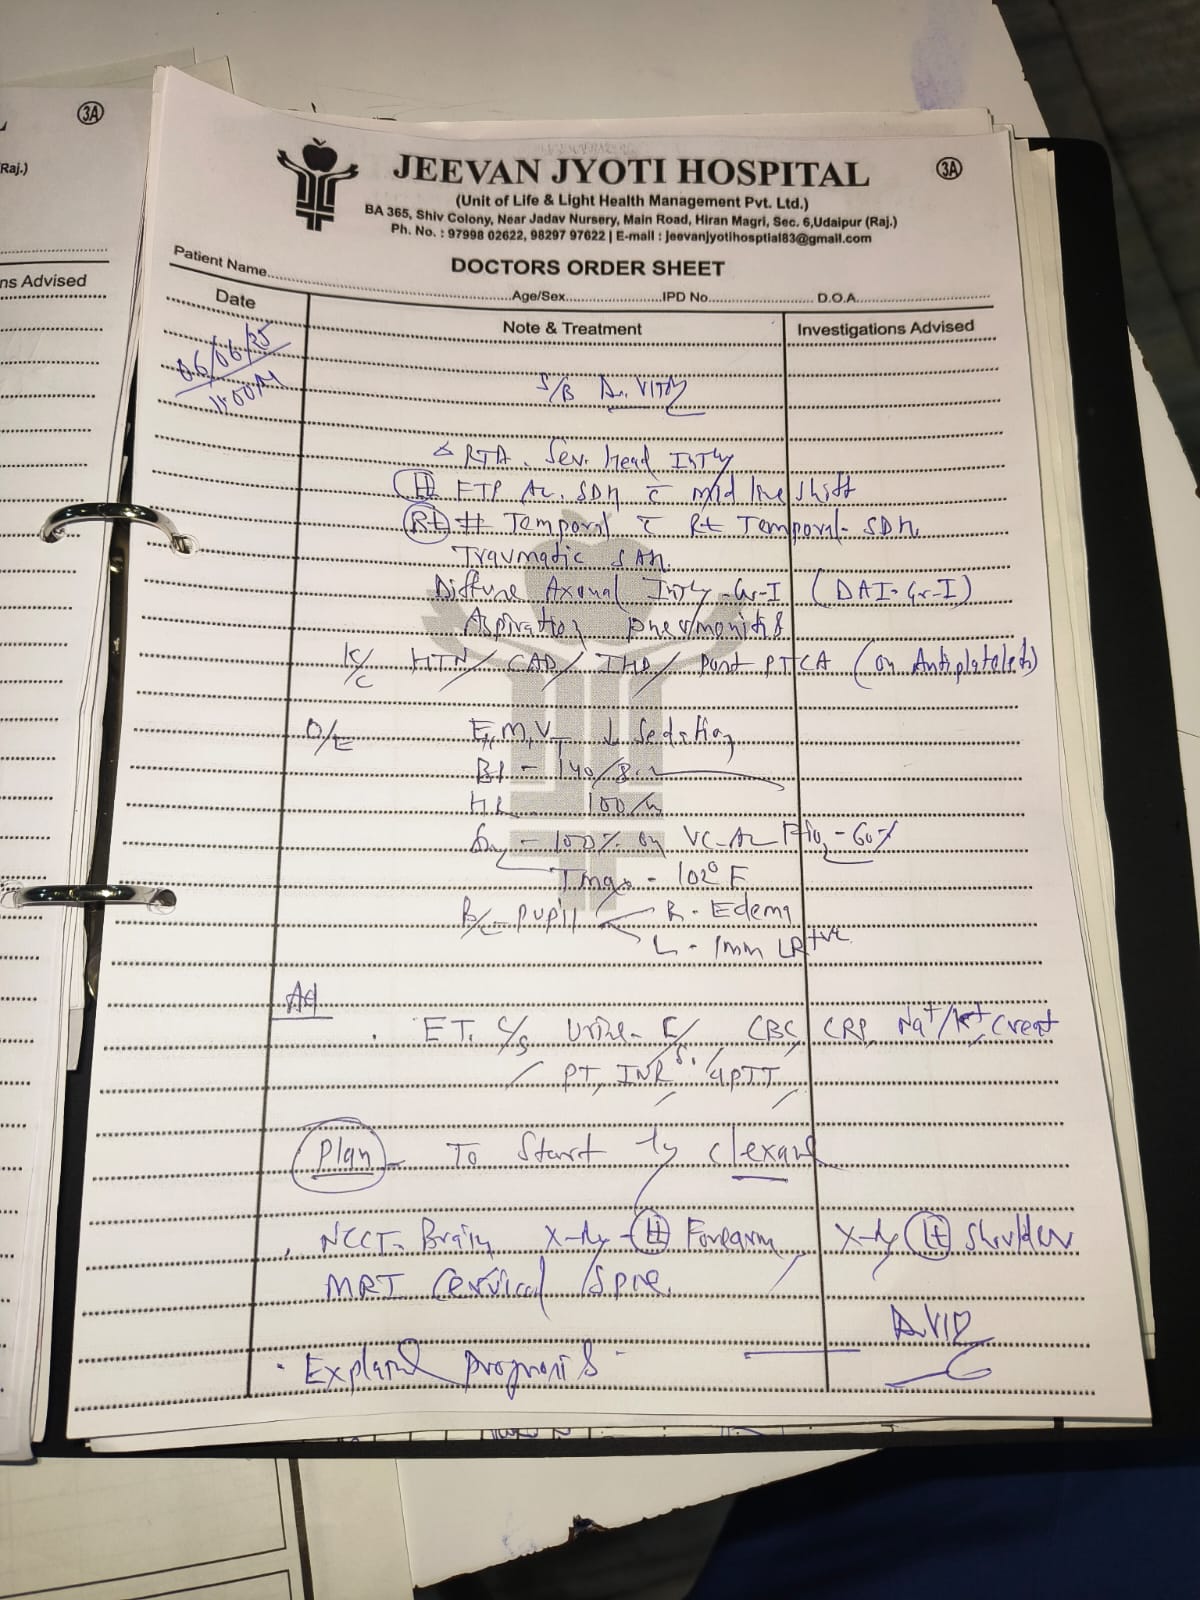 3A
Raj.)
ns Advised
JEEVAN JYOTI HOSPITAL
3A
(Unit of Life & Light Health Management Pvt. Ltd.)
BA 365, Shiv Colony, Near Jadav Nursery, Main Road, Hiran Magri, Sec. 6,Udaipur (Raj.)
Ph. No. : 97998 02622, 98297 97622 | E-mail : jeevanjyotihosptial83@gmail.com
DOCTORS ORDER SHEET
Patient Name Age/Sex IPD No. D.O.A.
Date Note & Treatment Investigations Advised
06/06/25
S/B Dr.
Δ RTA. Sev. Head Injury
Lt FTP Ac. SDH c̅ mid line shift
Rt # Temporal c̅ Rt Temporal SDH
Traumatic SAH.
Diffuse Axonal Injury -Gr-I (DAI-Gr-I)
Aspiration pneumonitis
K/C HTN/ CAD/ IHD/ Post PTCA (on Antiplatelets)
O/E ↓ Sedation
BP - 140/
HR 100/m
- 100% on VC-AC - 60%
Tmax - 102° F
B/L pupil R - Edema
L - 1mm LR +ve
Ad
ET. C/S Urine- CBC, CRP, Na+/K+, Creat
PT, INR, aPTT
Plan - To Start Inj Clexane
NCCT- Brain X-ray - Lt Forearm, X-ray Lt Shoulder
MRI Cervical Spine.
Explained prognosis